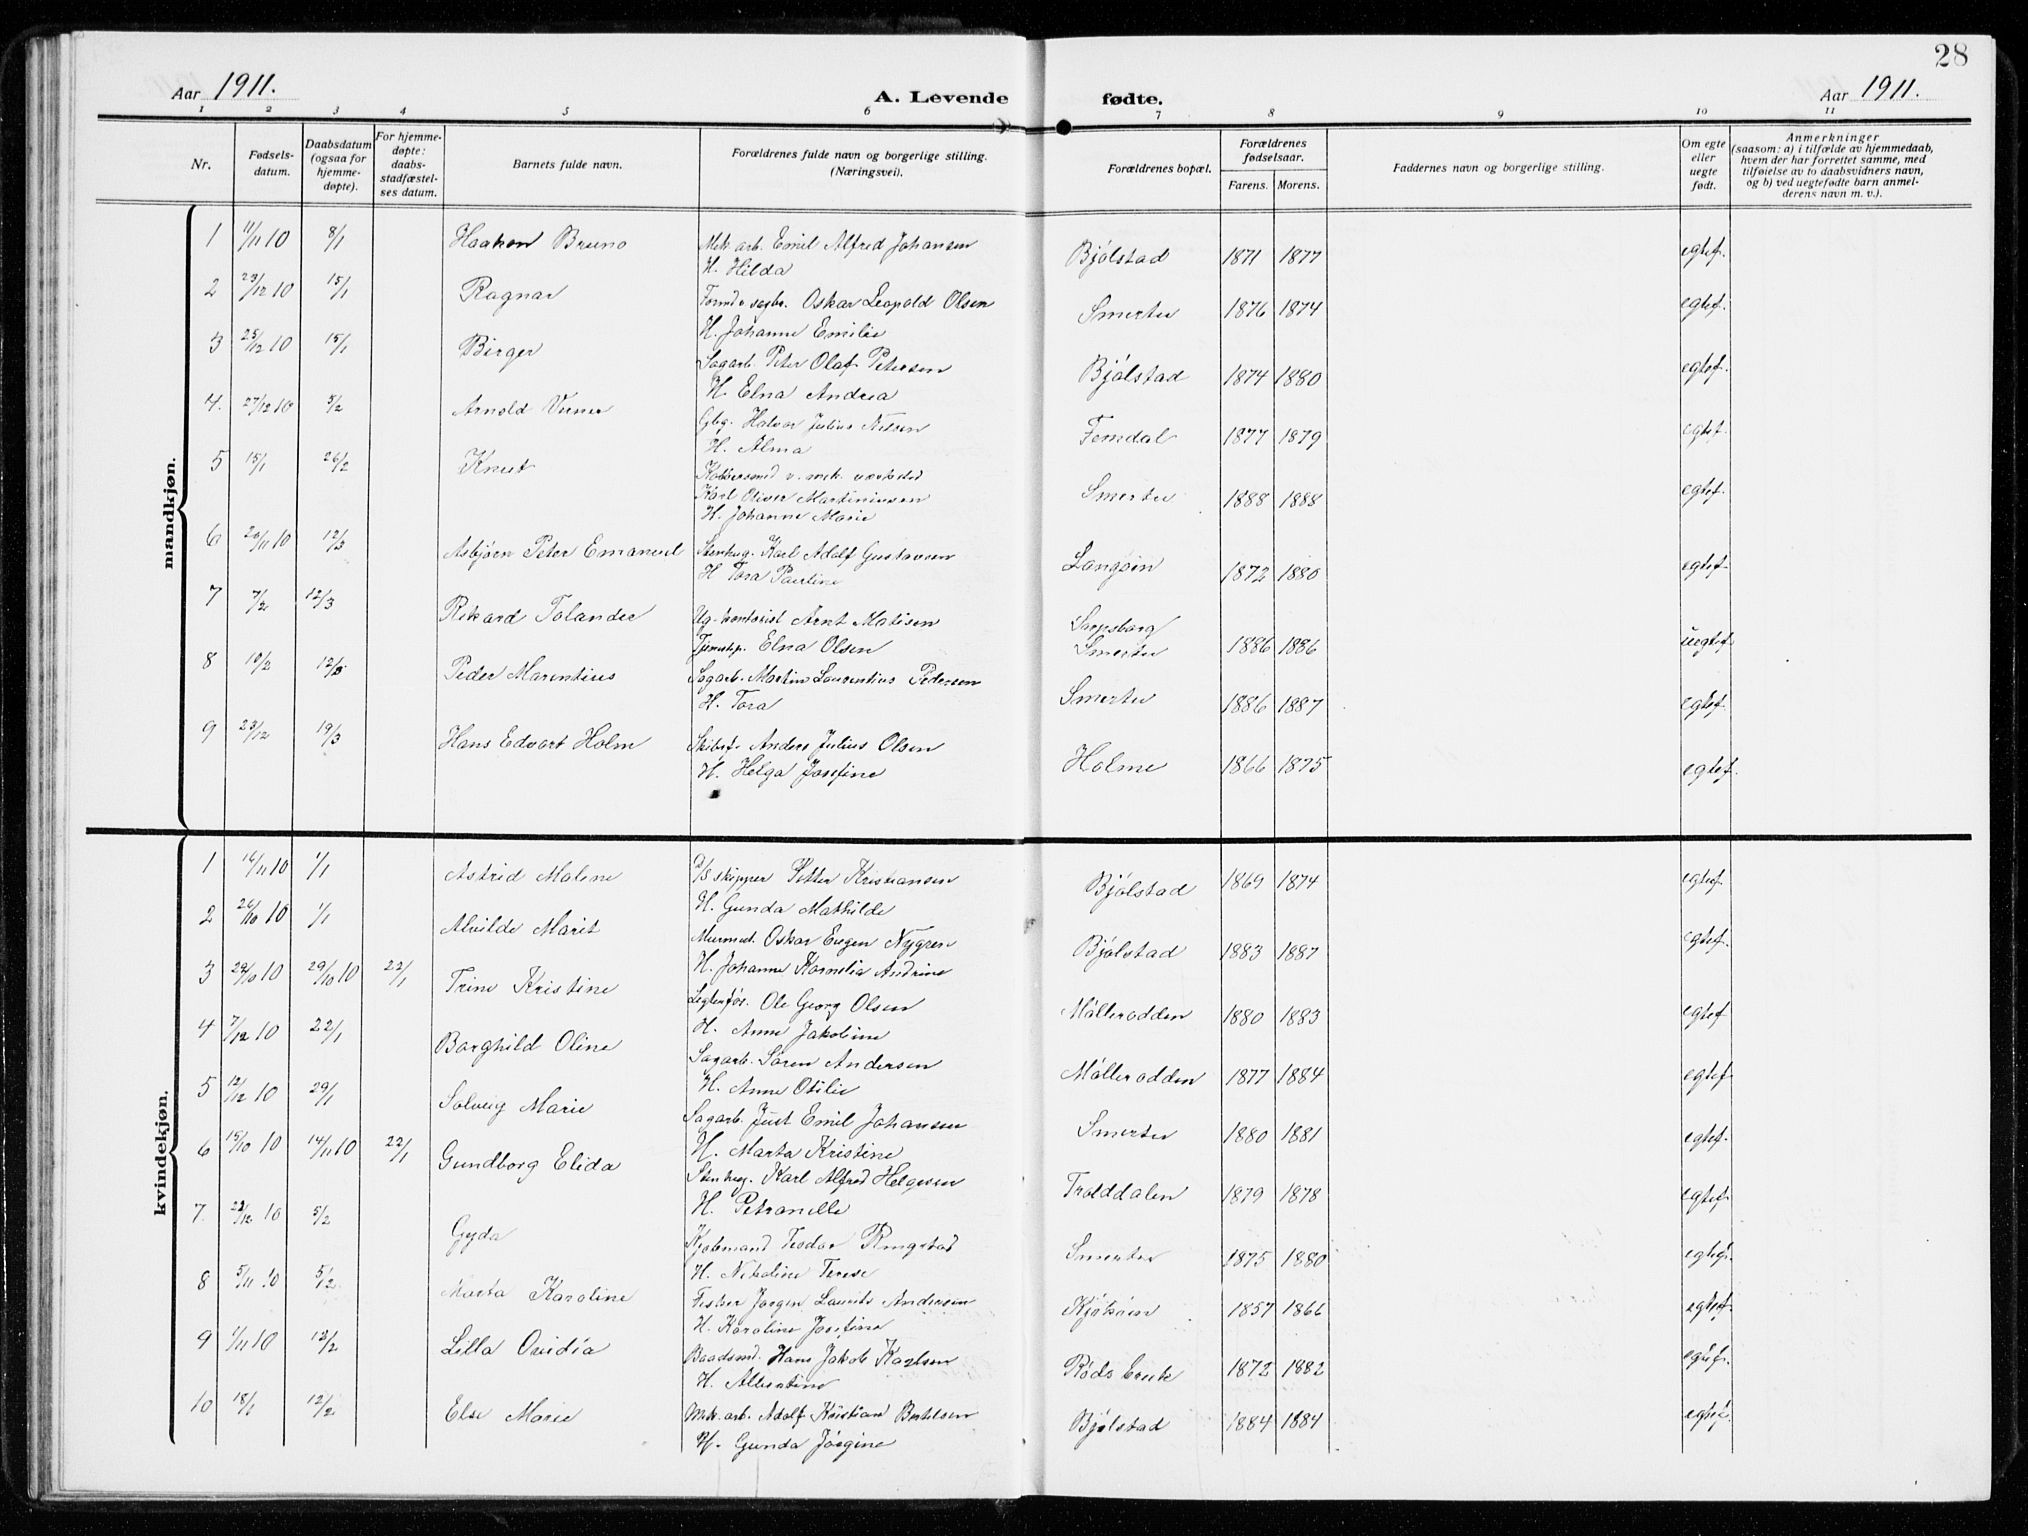 28
Aar 1911.
A. Levende fødte.
Aar 1911.
1 2 3 4 5 6 7 8 9 10 11
Nr.
Fødsels-
datum.
Daabsdatum
(ogsaa for
hjemme-
døpte).
For hjemme-
døpte:
daabs-
stadfæstel-
ses datum.
Barnets fulde navn.
Forældrenes fulde navn og borgerlige stilling.
(Næringsvei).
Forældrenes bopæl.
Forældrenes
fødselsaar.
Farens. Morens.
Faddernes navn og borgerlige stilling.
Om egte
eller
uegte
født.
Anmerkninger
(saasom: a) i tilfælde av hjemmedaab,
hvem der har forrettet samme, med
tilføielse av to daabsvidners navn,
og b) ved uegtefødte barn anmel-
derens navn m. v.).
mandkjøn.
1 11/11 10 8/1 Haakon Bruno Mek. arb. Emil Alfred Johansen Bjølstad 1871 1877 egtef.
H. Hilda
2 23/12 10 15/1 Ragnar Oskar Leopold Olsen Smertu 1876 1874 egtef.
H. Johanne Emilie
3 25/12 10 15/1 Birger Sagarb. Peter Olaf Petersen Bjølstad 1874 1880 egtef.
H. Elna Andrea
4. 27/12 10 5/2 Arnold Verner Gbrg. Halvor Julius Nilsen Femdal 1877 1879 egtef.
H. Alma
5 15/1 26/2 Knut Kobbersmed v. mek. verksted
Karl Oliver Martiniusen Smertu 1888 1888 egtef.
H. Johanne Marie
6 20/11 10 12/3 Asbjørn Peter Emanuel Stenhug. Karl Adolf Gustavsen Langøin 1872 1880 egtef.
H. Tora Pauline
7 7/2 12/3 Rikard Tolander Ug. kontorist Arnt Matisen Sarpsborg
Tjenestep. Elna Olsen Smertu 1886 1886 uegtef.
8 10/2 12/3 Peder Marentius Sagarb. Martin Laurentius Pedersen Smertu 1886 1887 egtef.
H. Tora
9 23/12 19/3 Hans Edvart Holm Skibsf. Anders Julius Olsen Holme 1866 1875 egtef.
H. Helga Josefine
kvindekjøn.
1 16/11 10 1/1 Astrid Malene D/S skipper Petter Kristiansen Bjølstad 1869 1874 egtef.
H. Gunda Mathilde
2 26/10 10 1/1 Alvilde Marit Murmest. Oskar Eugen Nygren Bjølstad 1883 1887 egtef.
H. Johanne Kornelia Andrine
3 29/10 10 29/10 10 22/1 Trine Kristine Ole Georg Olsen Mølleradden 1880 1883 egtef
H. Anne Jakobine
4 7/12 10 22/1 Borghild Oline Sagarb. Søren Andersen Mølleradden 1877 1884 egtef
H. Anne Otilie
5 12/12 10 29/1 Solveig Marie Sagarb. Just Emil Johansen Smertu 1880 1881 egtef.
H. Marta Kristine
6 15/10 10 14/11 10 22/1 Gundborg Elida Stenhug. Karl Alfred Helgesen Tralddalen 1879 1878 egtef.
H. Petronelle
7. 22/12 10 5/2 Gyda Kjøbmand Teodor Ringstad Smertu 1875 1880 egtef.
H. Nikoline Terese
8 5/11 10 5/2 Marta Karoline Fisker Jørgen Laurits Andersen Kjøkøen 1857 1866 egtef.
H. Karoline Josefine
9 1/11 10 12/2 Lilla Ovidia Baadsmd. Hans Jakob Karlsen Røds bruk 1872 1882 egtef.
H. Albertine
10 18/1 12/2 Else Marie Mek. arb. Adolf Kristian Bertelsen Bjølstad 1884 1884 egtef.
H. Gunda Jørgine